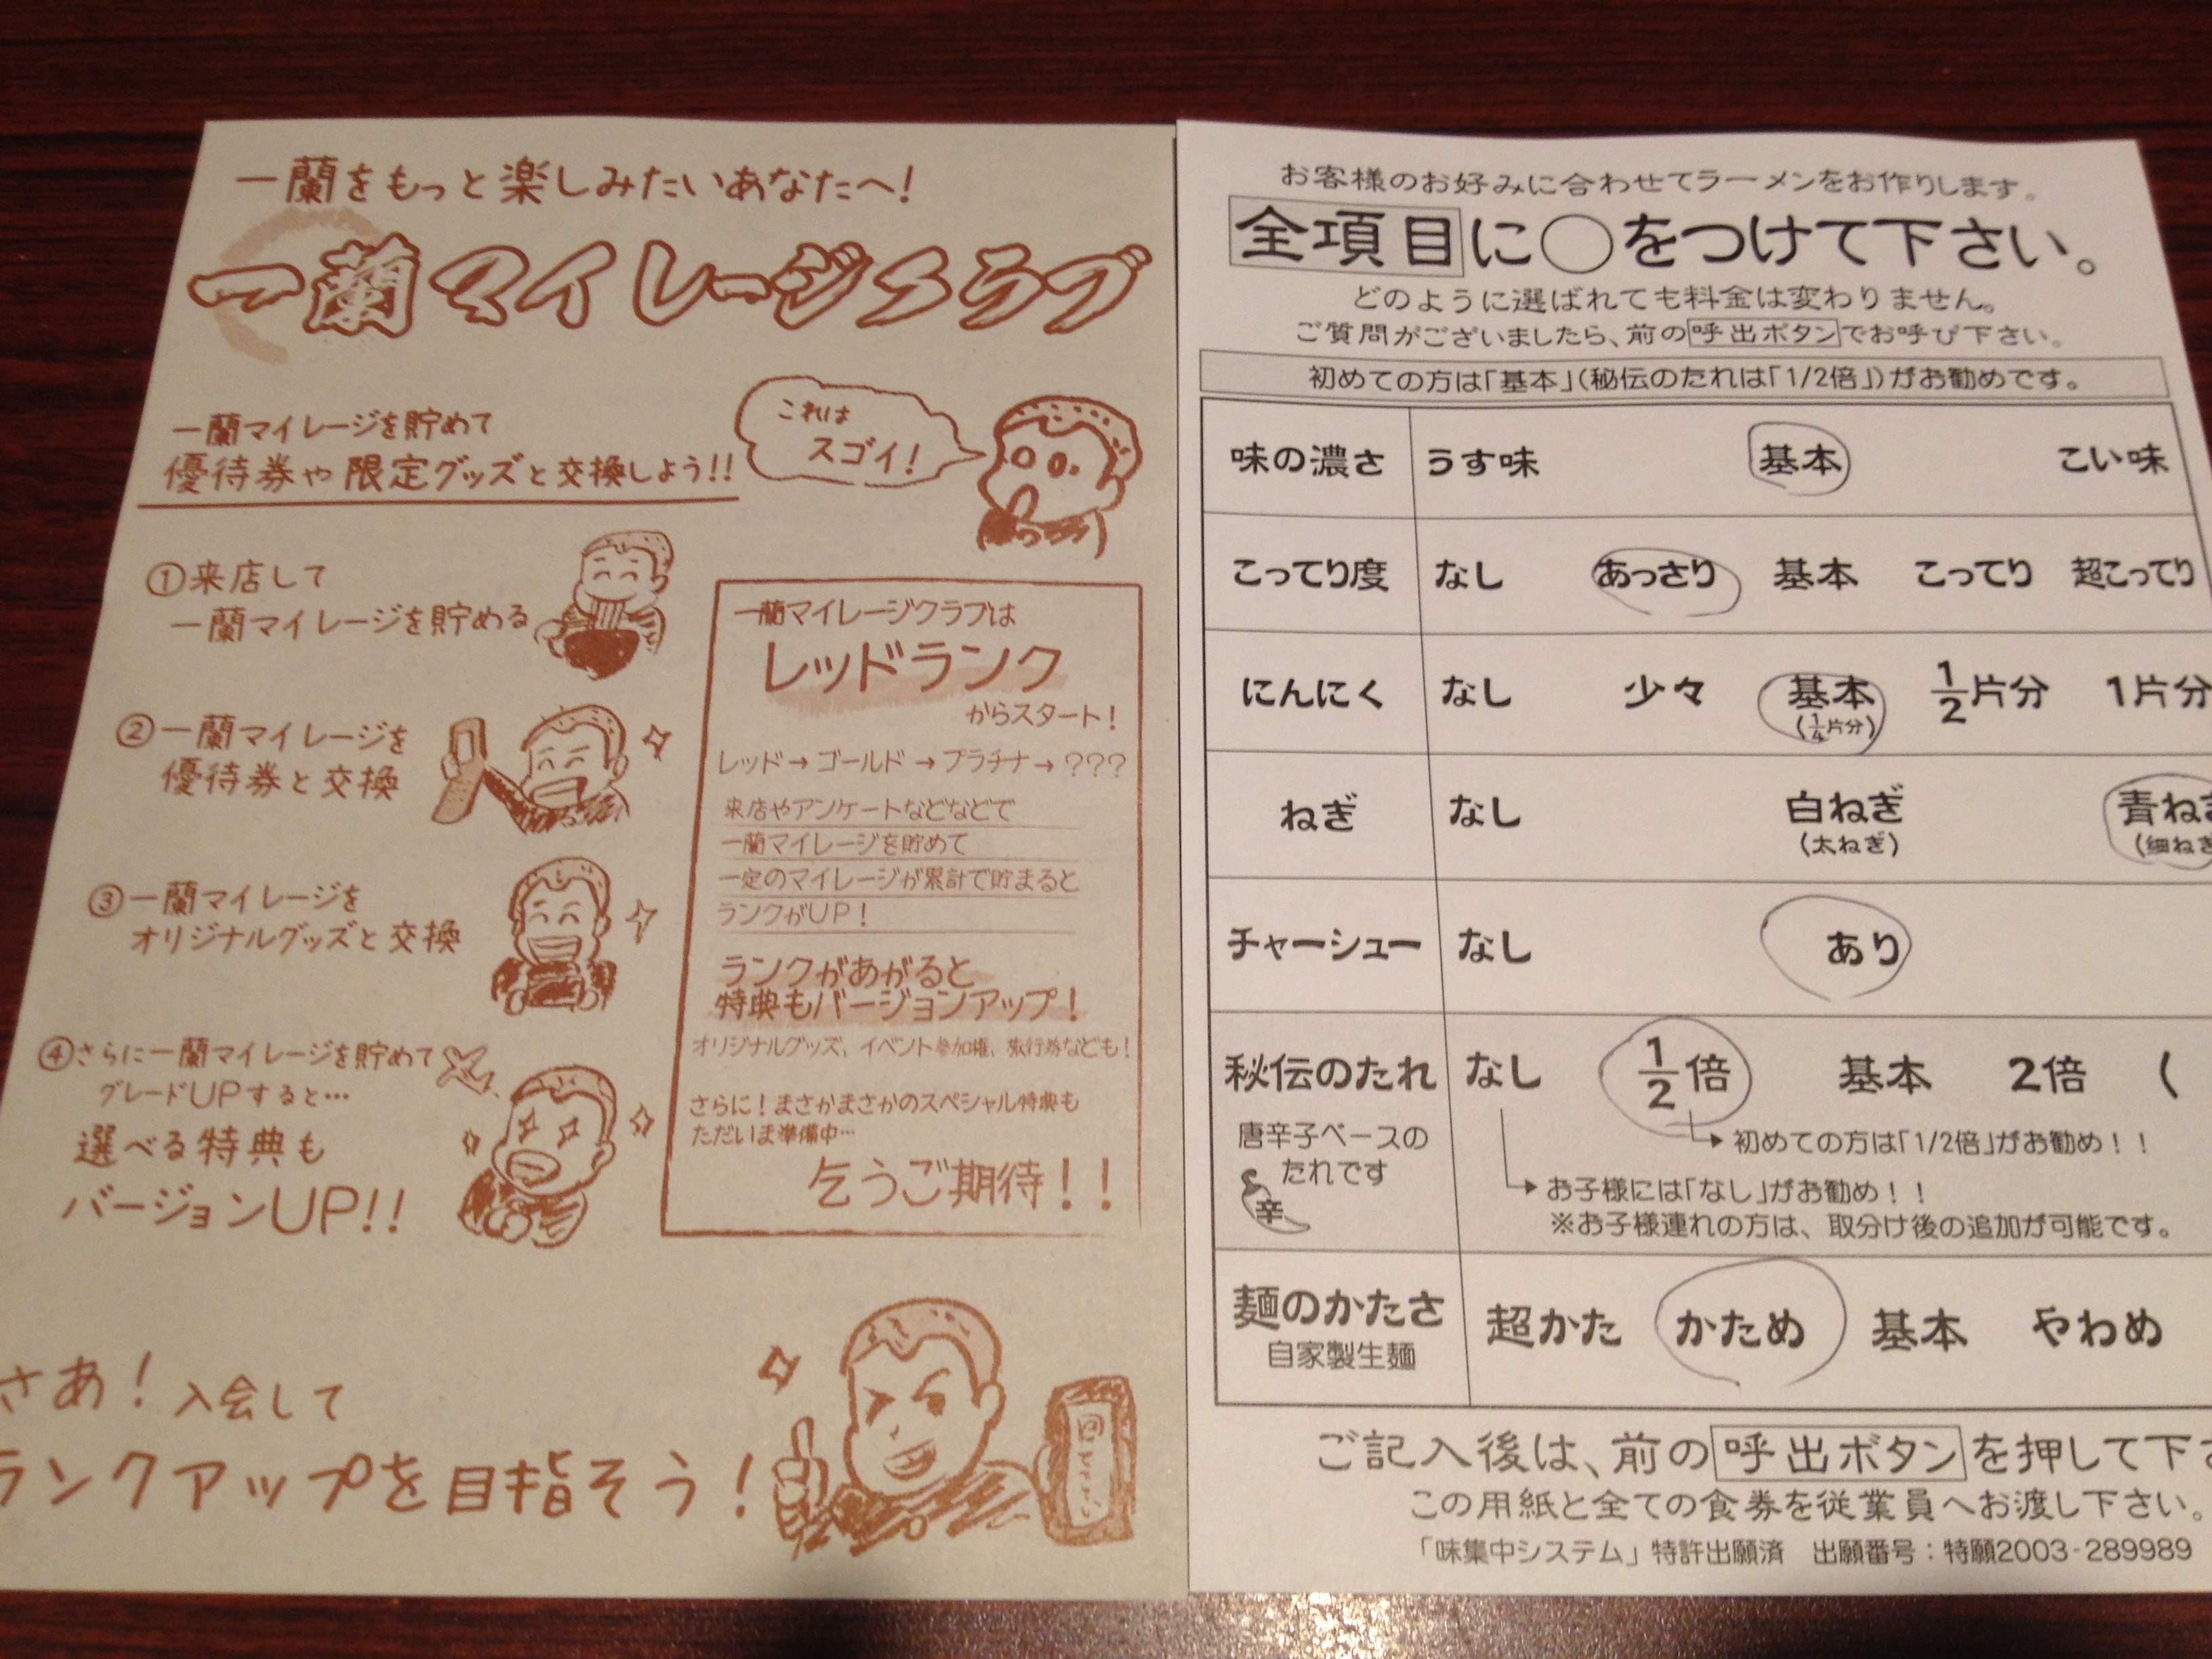 一蘭をもっと楽しみたいあなたへ!
一蘭マイレージクラブ
一蘭マイレージを貯めて
優待券や限定グッズと交換しよう!!
これは
スゴイ!
①来店して
一蘭マイレージを貯める
②一蘭マイレージを
優待券と交換
③一蘭マイレージを
オリジナルグッズと交換
④さらに一蘭マイレージを貯めて
グレードUPすると…
選べる特典も
バージョンUP!!
一蘭マイレージクラブは
レッドランク
からスタート!
レッド→ゴールド→プラチナ→???
来店やアンケートなどなどで
一蘭マイレージを貯めて
一定のマイレージが累計で貯まると
ランクがUP!
ランクがあがると
特典もバージョンアップ!
オリジナルグッズ、イベント参加権、旅行券なども!
さらに!まさかまさかのスペシャル特典も
ただいま準備中…
乞うご期待!!
さあ!入会して
ランクアップを目指そう!
お客様のお好みに合わせてラーメンをお作りします。
全項目に○をつけて下さい。
どのように選ばれても料金は変わりません。
ご質問がございましたら、前の呼出ボタンでお呼び下さい。
初めての方は「基本」(秘伝のたれは「1/2倍」)がお勧めです。
味の濃さ うす味 基本 こい味
こってり度 なし あっさり 基本 こってり 超こってり
にんにく なし 少々 基本 1/2片分 1片分
(1/4片分)
ねぎ なし 白ねぎ 青ねぎ
(太ねぎ) (細ねぎ
チャーシュー なし あり
秘伝のたれ なし 1/2倍 基本 2倍 (
唐辛子ベースの
たれです
辛
初めての方は「1/2倍」がお勧め!!
お子様には「なし」がお勧め!!
※お子様連れの方は、取分け後の追加が可能です。
麺のかたさ 超かた かため 基本 やわめ
自家製生麺
ご記入後は、前の呼出ボタンを押して下さ
この用紙と全ての食券を従業員へお渡し下さい。
「味集中システム」特許出願済 出願番号:特願2003-289989